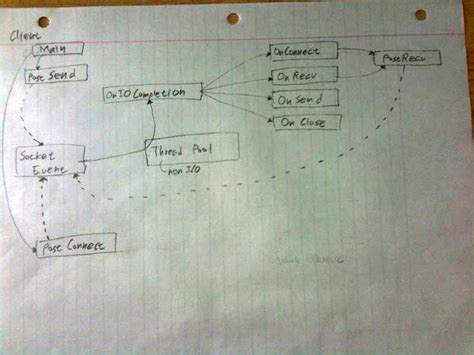 Client
Main
Post Send
OnIOCompletion
OnConnect
OnRecv
OnSend
OnClose
PostRecv
Socket
Event
Thread Pool
non I/O
Post Connect